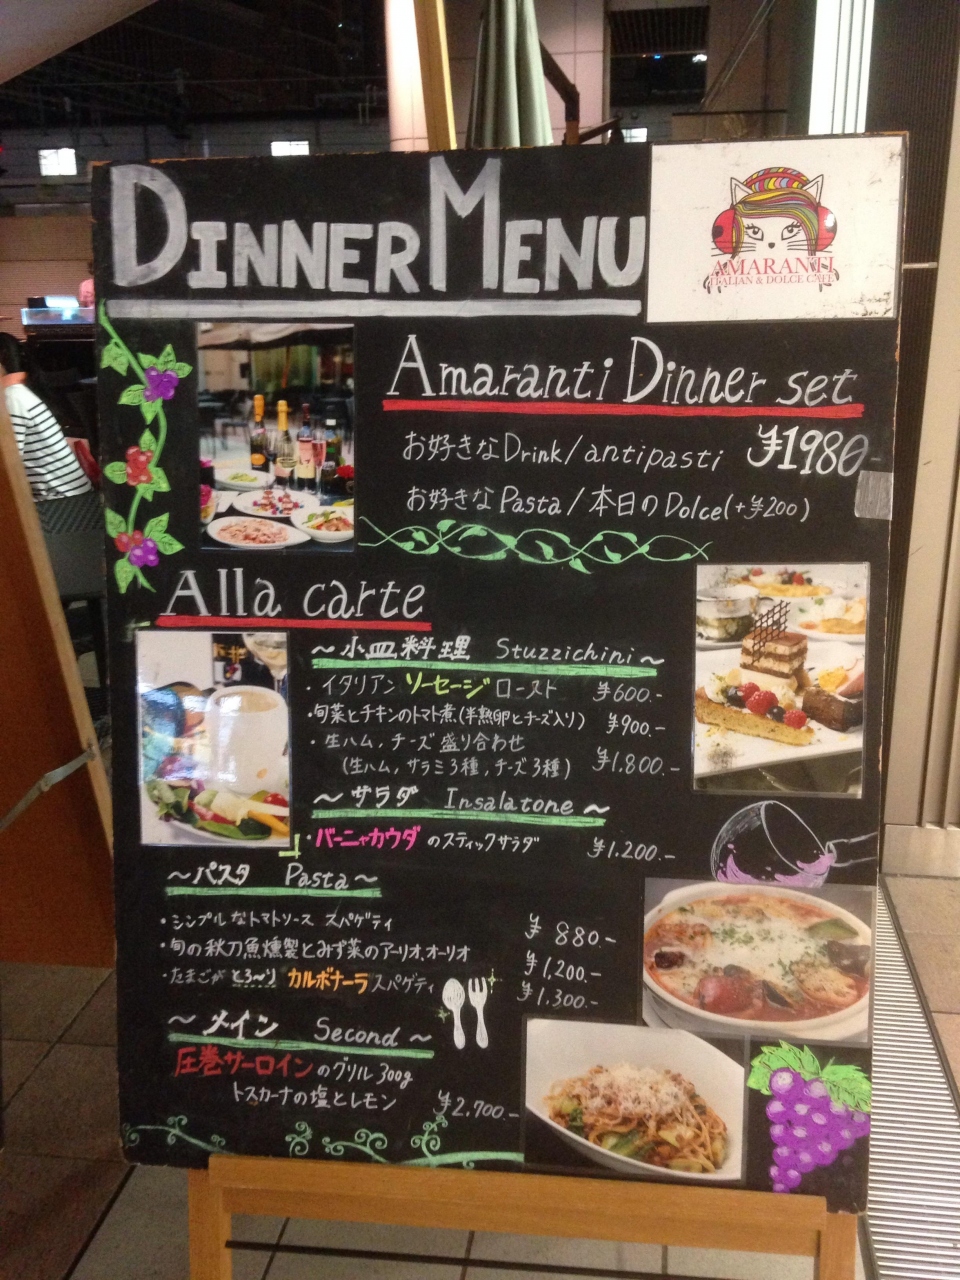 DINNER MENU
AMARANTI
ITALIAN & DOLCE CAFE
Amaranti Dinner set
お好きなDrink/antipasti ¥1980-
お好きなPasta/本日のDolce(+¥200)
Alla carte
～小皿料理 Stuzzichini～
・イタリアンソーセージロースト ¥600.-
・旬菜とチキンのトマト煮(半熟卵とチーズ入り) ¥900.-
・生ハム,チーズ盛り合わせ
(生ハム,サラミ3種,チーズ3種) ¥1.800.-
～サラダ Insalatone～
・バーニャカウダのスティックサラダ ¥1.200.-
～パスタ Pasta～
・シンプルなトマトソース スパゲティ ¥880-
・旬の秋刀魚燻製とみず菜のアーリオ,オーリオ ¥1,200.-
・たまごがとろ～りカルボナーラスパゲティ ¥1.300.-
～メイン Second～
圧巻サーロインのグリル300g
トスカーナの塩とレモン ¥2.700.-